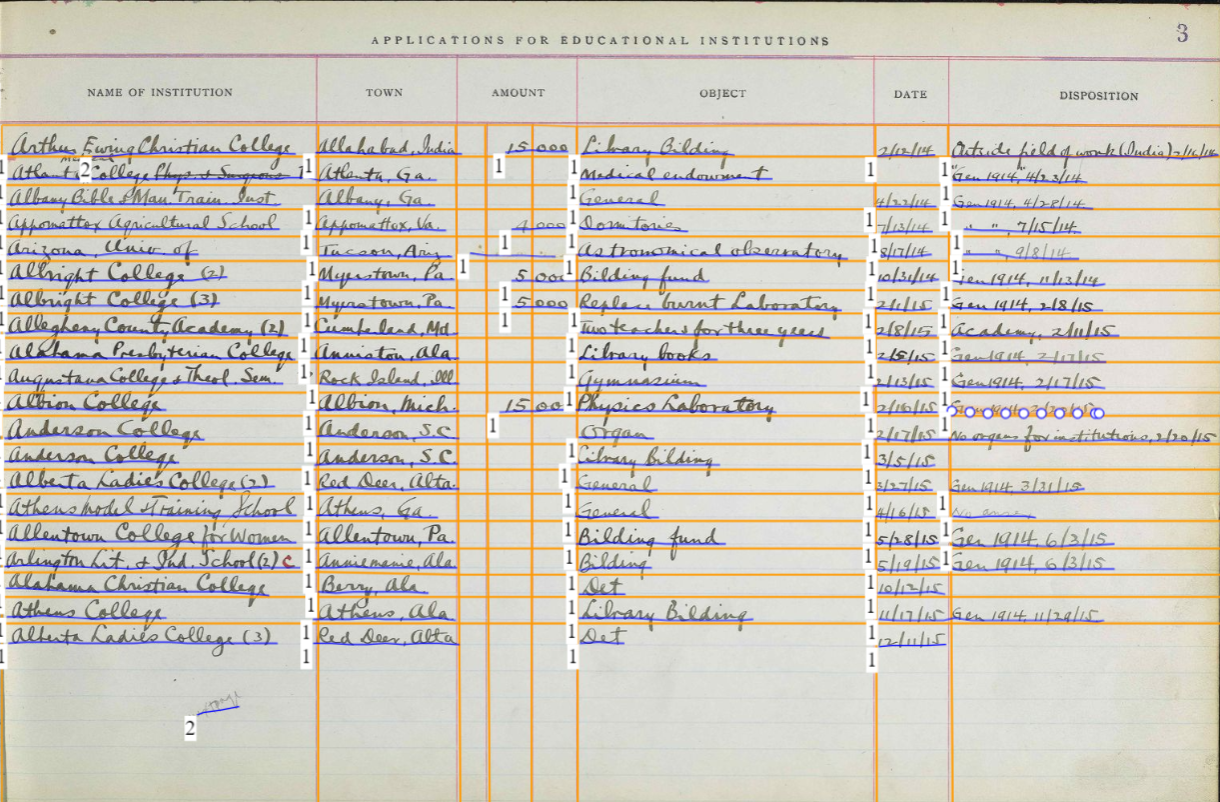 3
APPLICATIONS FOR EDUCATIONAL INSTITUTIONS
NAME OF INSTITUTION TOWN AMOUNT OBJECT DATE DISPOSITION
Arthur Ewing Christian College Allahabad, India 15 000 Library Bilding 2/12/14 Outside field of work (India) 2/16/14
Medical
Atlanta College Phys. & Surgeons Atlanta, Ga. Medical endowment Gen 1914, 4/23/14
Albany Bible & Man. Train. Inst Albany, Ga. General 4/22/14 Gen 1914, 4/28/14
Appomattox Agricultural School Appomattox, Va. 4 000 Dormitories 7/13/14 " ", 7/15/14
Arizona, Univ. of Tucson, Ariz Astronomical observatory 8/7/14 " ", 9/8/14
Albright College (2) Myerstown, Pa 5 000 Bilding fund 10/31/14 Gen 1914, 11/13/14
Albright College (3) Myerstown, Pa. 5 000 Replace burnt Laboratory 2/1/15 Gen 1914, 2/8/15
Allegheny County Academy (2) Cumberland, Md Two teachers for three years 2/8/15 Academy, 2/11/15
Alabama Presbyterian College Anniston, Ala Library books 2/5/15 Gen 1914, 2/17/15
Augustana College & Theol. Sem. Rock Island, Ill Gymnasium 2/13/15 Gen 1914, 2/17/15
Albion College Albion, Mich. 15 00 Physics Laboratory 2/16/15
Anderson College Anderson, S.C Organ 2/17/15 No organs for institutions, 2/20/15
Anderson College Anderson, S.C. Library Bilding 3/5/15
Alberta Ladies College (2) Red Deer, Alta. General 3/27/15 Gen 1914, 3/31/15
Athens Model & Training School Athens, Ga. General 4/16/15 No
Allentown College for Women Allentown, Pa. Bilding fund 5/28/15 Gen 1914, 6/3/15
Arlington Lit. & Ind. School (2) C Anniemanie, Ala Bilding 5/19/15 Gen 1914, 6/3/15
Alabama Christian College Berry, Ala. Det 10/12/15
Athens College Athens, Ala Library Bilding 11/17/15 Gen 1914, 11/29/15
Alberta Ladies College (3) Red Deer, Alta Det 12/11/15